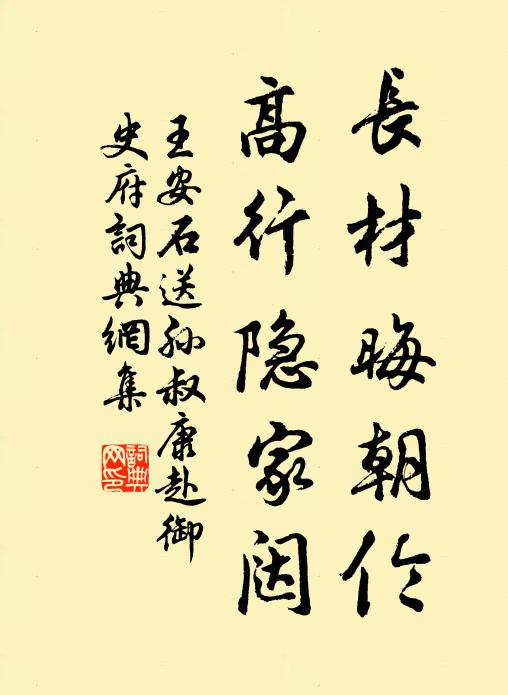 長材晦朝
高行隐家
王安石送孫叔康赴御
史府詞典網集
詞典网印